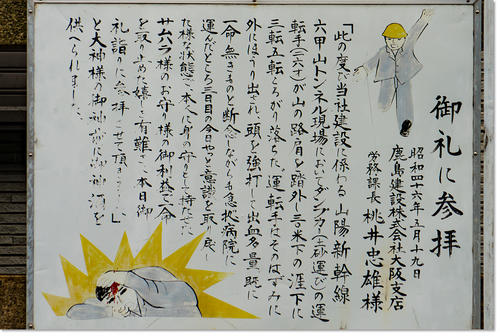 御礼に参拝
昭和四十六年五月十九日
鹿島建設株式会社大阪支店
労務課長 桃井忠雄様
「此の度び当社建設に係わる山陽新幹線
六甲山トンネル現場においてダンプカー(土砂運びの運
転手(三六才)が山の路肩を踏外し三〇米下の涯下に
三転五転ころがり落ちた。運転手はそのはずみに
外にほうり出され、頭を強打して出血多量既に
命無きものと断念しながらも急拠病院に
運んだところ三日目の今日やっと意識を取り戻し
た様な状態で、本人に身の守として持たせた
サムラ様のお守り様の御利益で命
を取り止めた嬉しさ有難さ、本日御
礼詣りに参拝させて頂きました。」
と大神様の御神前に御神酒を
供へられました。